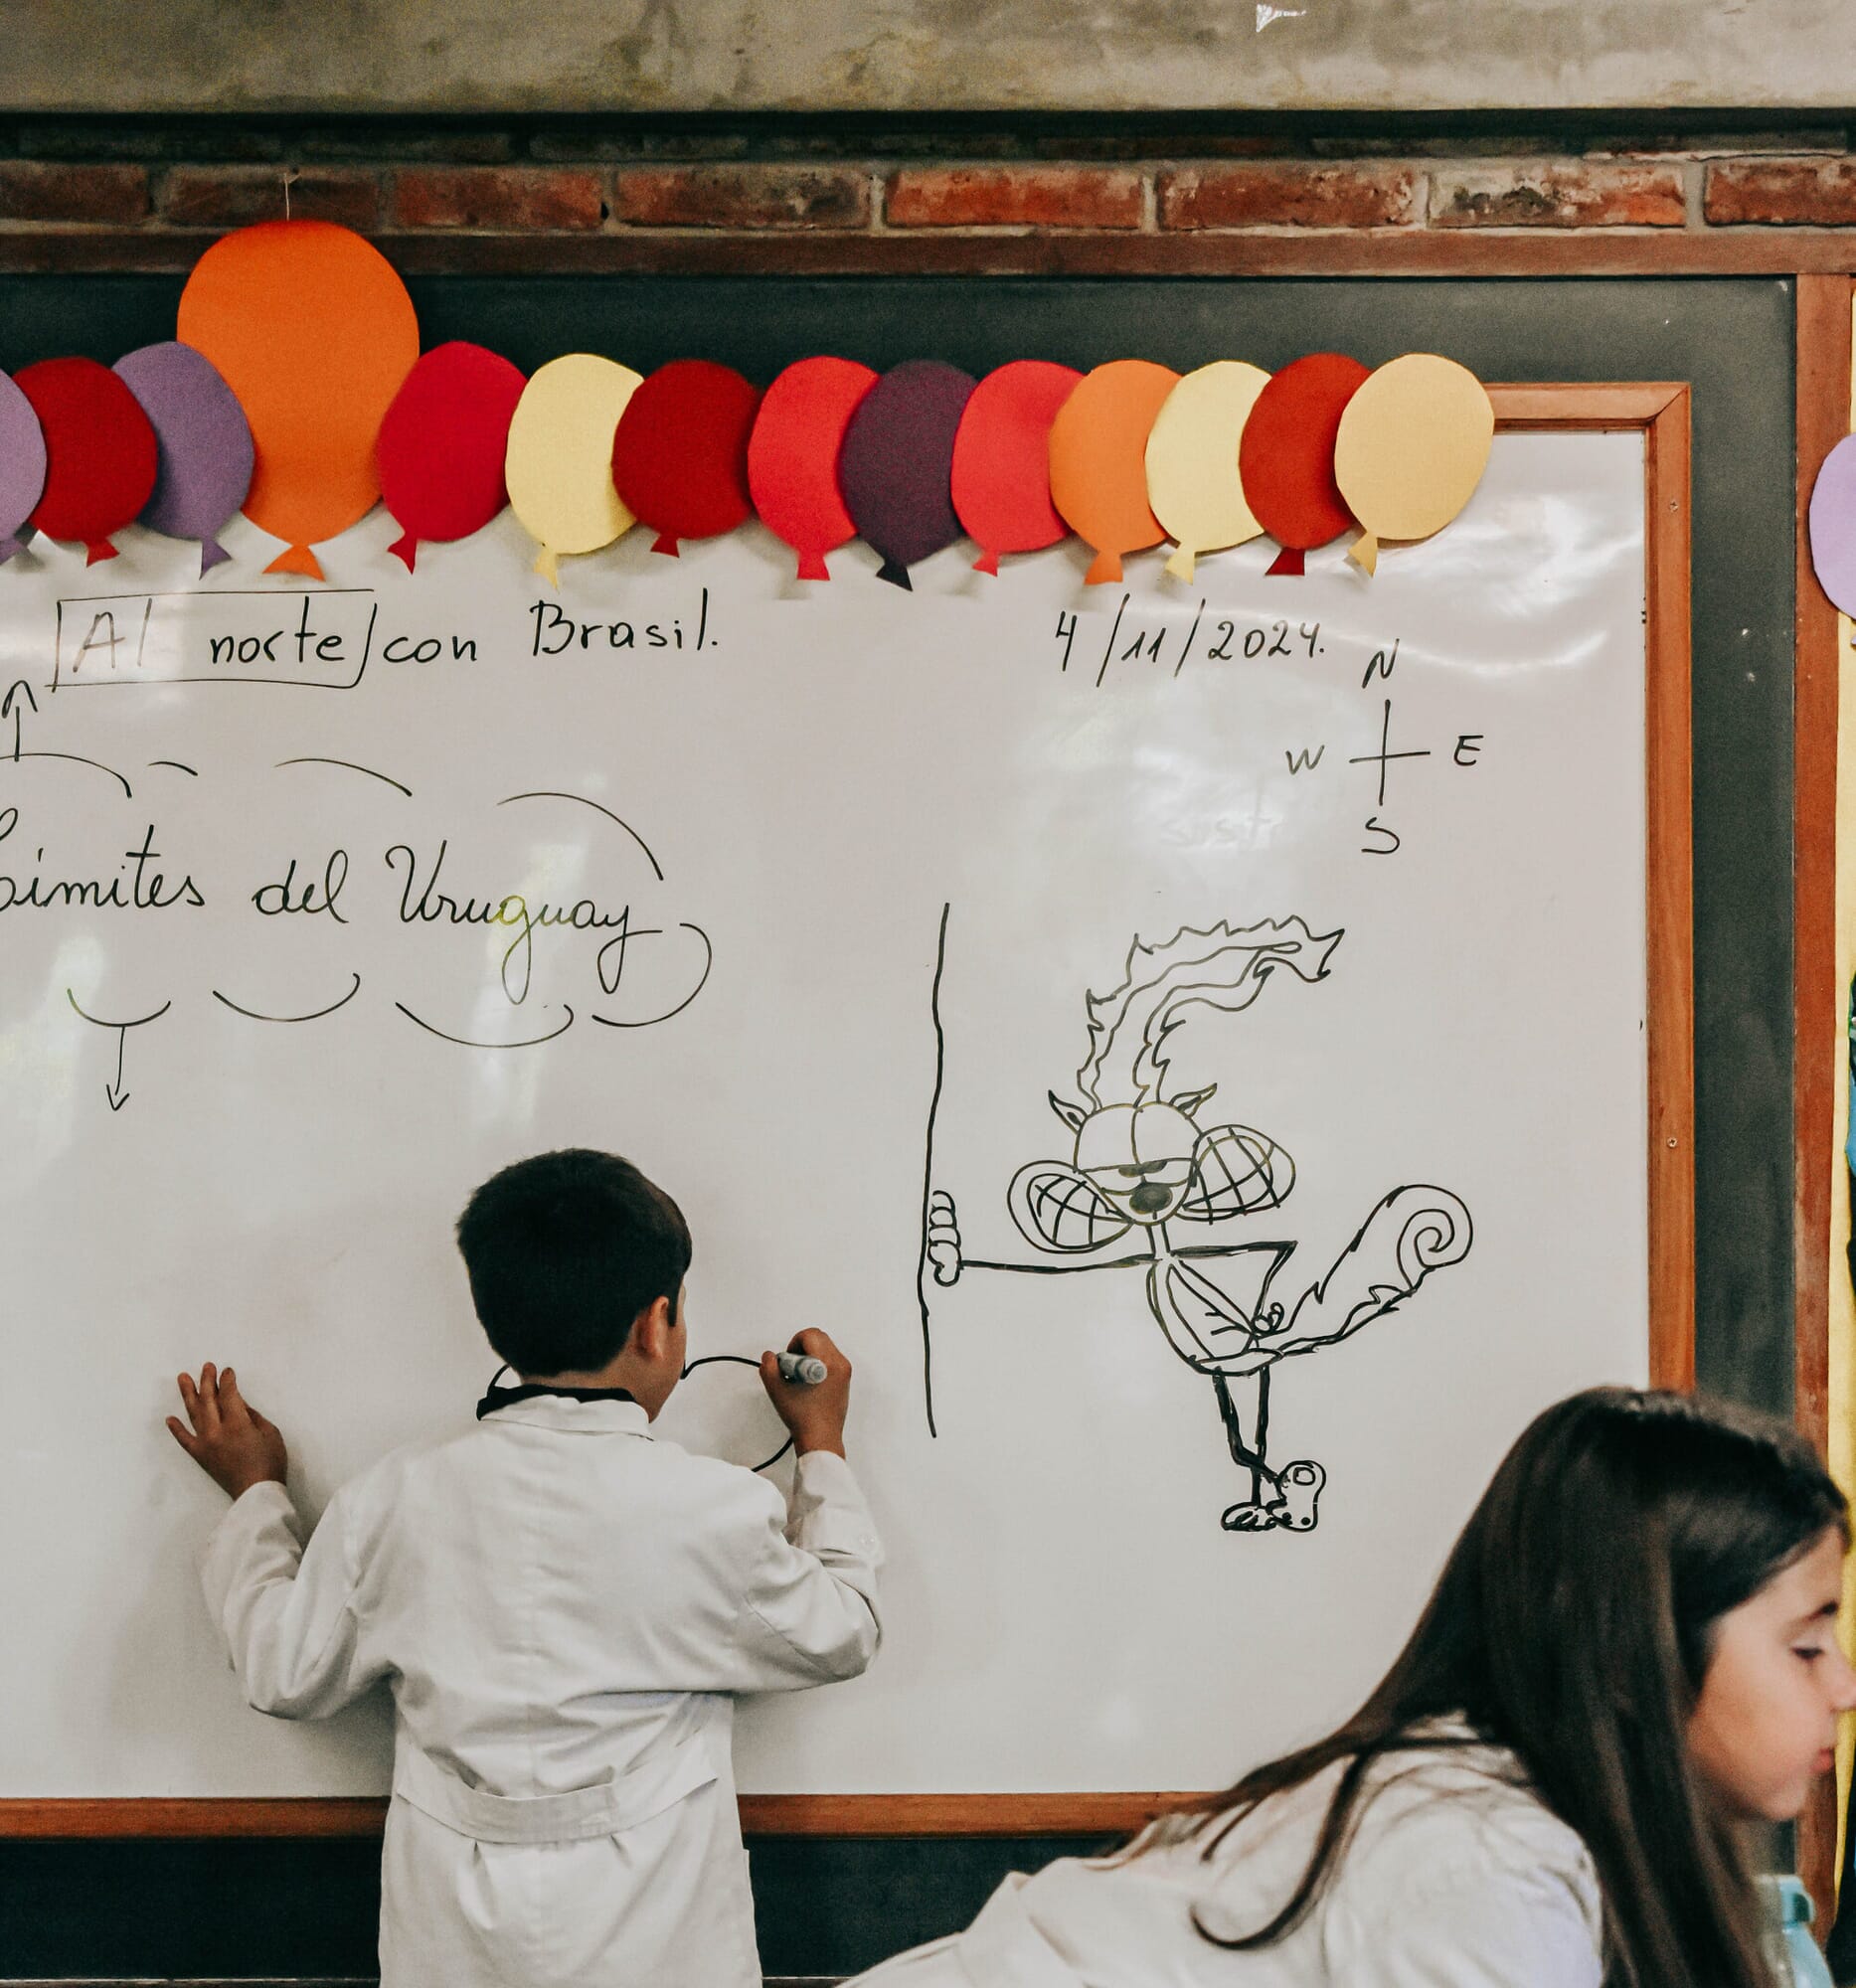 Al norte con Brasil.
4/11/2024.
N
W E
S
Límites del Uruguay